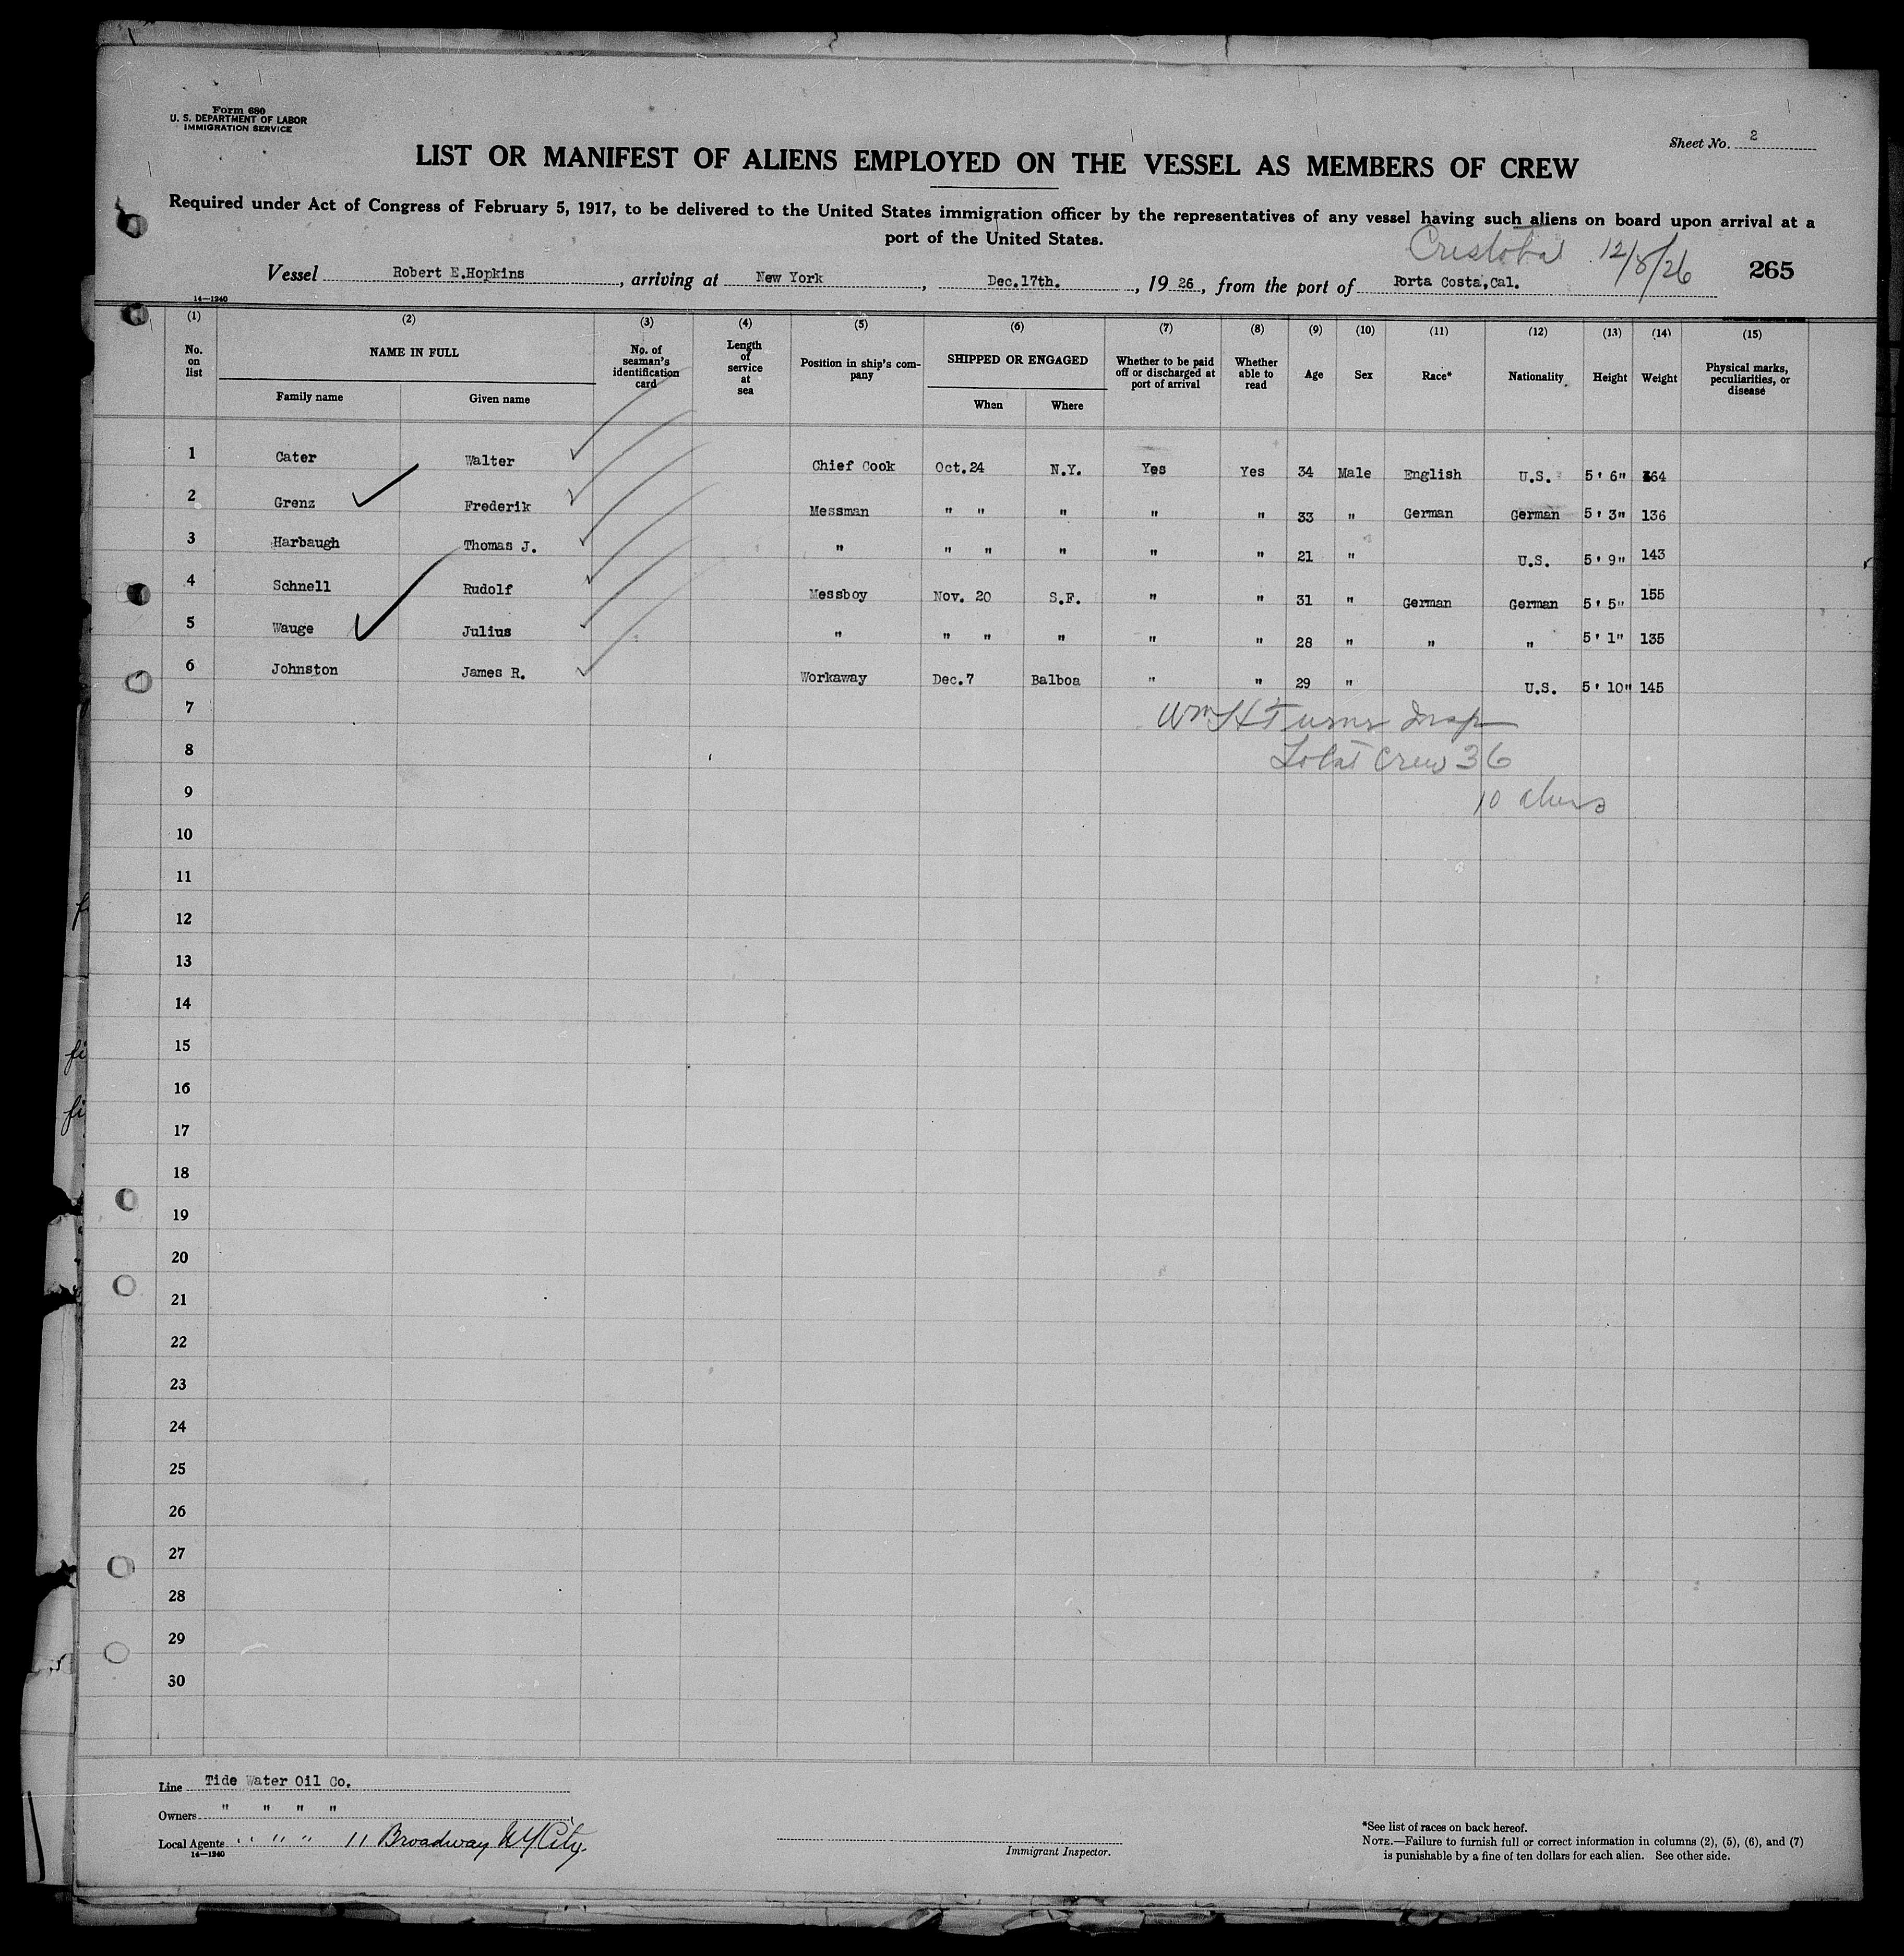 Form 680
U. S. DEPARTMENT OF LABOR
IMMIGRATION SERVICE
Sheet No. 2
LIST OR MANIFEST OF ALIENS EMPLOYED ON THE VESSEL AS MEMBERS OF CREW
Required under Act of Congress of February 5, 1917, to be delivered to the United States immigration officer by the representatives of any vessel having such aliens on board upon arrival at a
port of the United States.
Cristobal 12/8/26
265
Vessel Robert E.Hopkins, arriving at New York, Dec.17th., 1926, from the port of Porta Costa,Cal.
14—1240
(1) (2) (3) (4) (5) (6) (7) (8) (9) (10) (11) (12) (13) (14) (15)
No. on list NAME IN FULL No. of seaman's identification card Length of service at sea Position in ship's company SHIPPED OR ENGAGED Whether to be paid off or discharged at port of arrival Whether able to read Age Sex Race* Nationality Height Weight Physical marks, peculiarities, or disease
Family name Given name When Where
1 Cater Walter Chief Cook Oct.24 N.Y. Yes Yes 34 Male English U.S. 5' 6" 164
2 Grenz Frederik Messman " " " " " 33 " German German 5' 3" 136
3 Harbaugh Thomas J. " " " " " " 21 " U.S. 5' 9" 143
4 Schnell Rudolf Messboy Nov. 20 S.F. " " 31 " German German 5' 5" 155
5 Wauge Julius " " " " " " 28 " " " 5' 1" 135
6 Johnston James R. Workaway Dec.7 Balboa " " 29 " U.S. 5' 10" 145
7 Wm H Turner Insp
8 Total Crew 36
9 10 aliens
10
11
12
13
14
15
16
17
18
19
20
21
22
23
24
25
26
27
28
29
30
Line Tide Water Oil Co.
Owners " " " "
Local Agents " " " 11 Broadway NY City.
14—1240
Immigrant Inspector.
*See list of races on back hereof.
NOTE.—Failure to furnish full or correct information in columns (2), (5), (6), and (7)
is punishable by a fine of ten dollars for each alien. See other side.